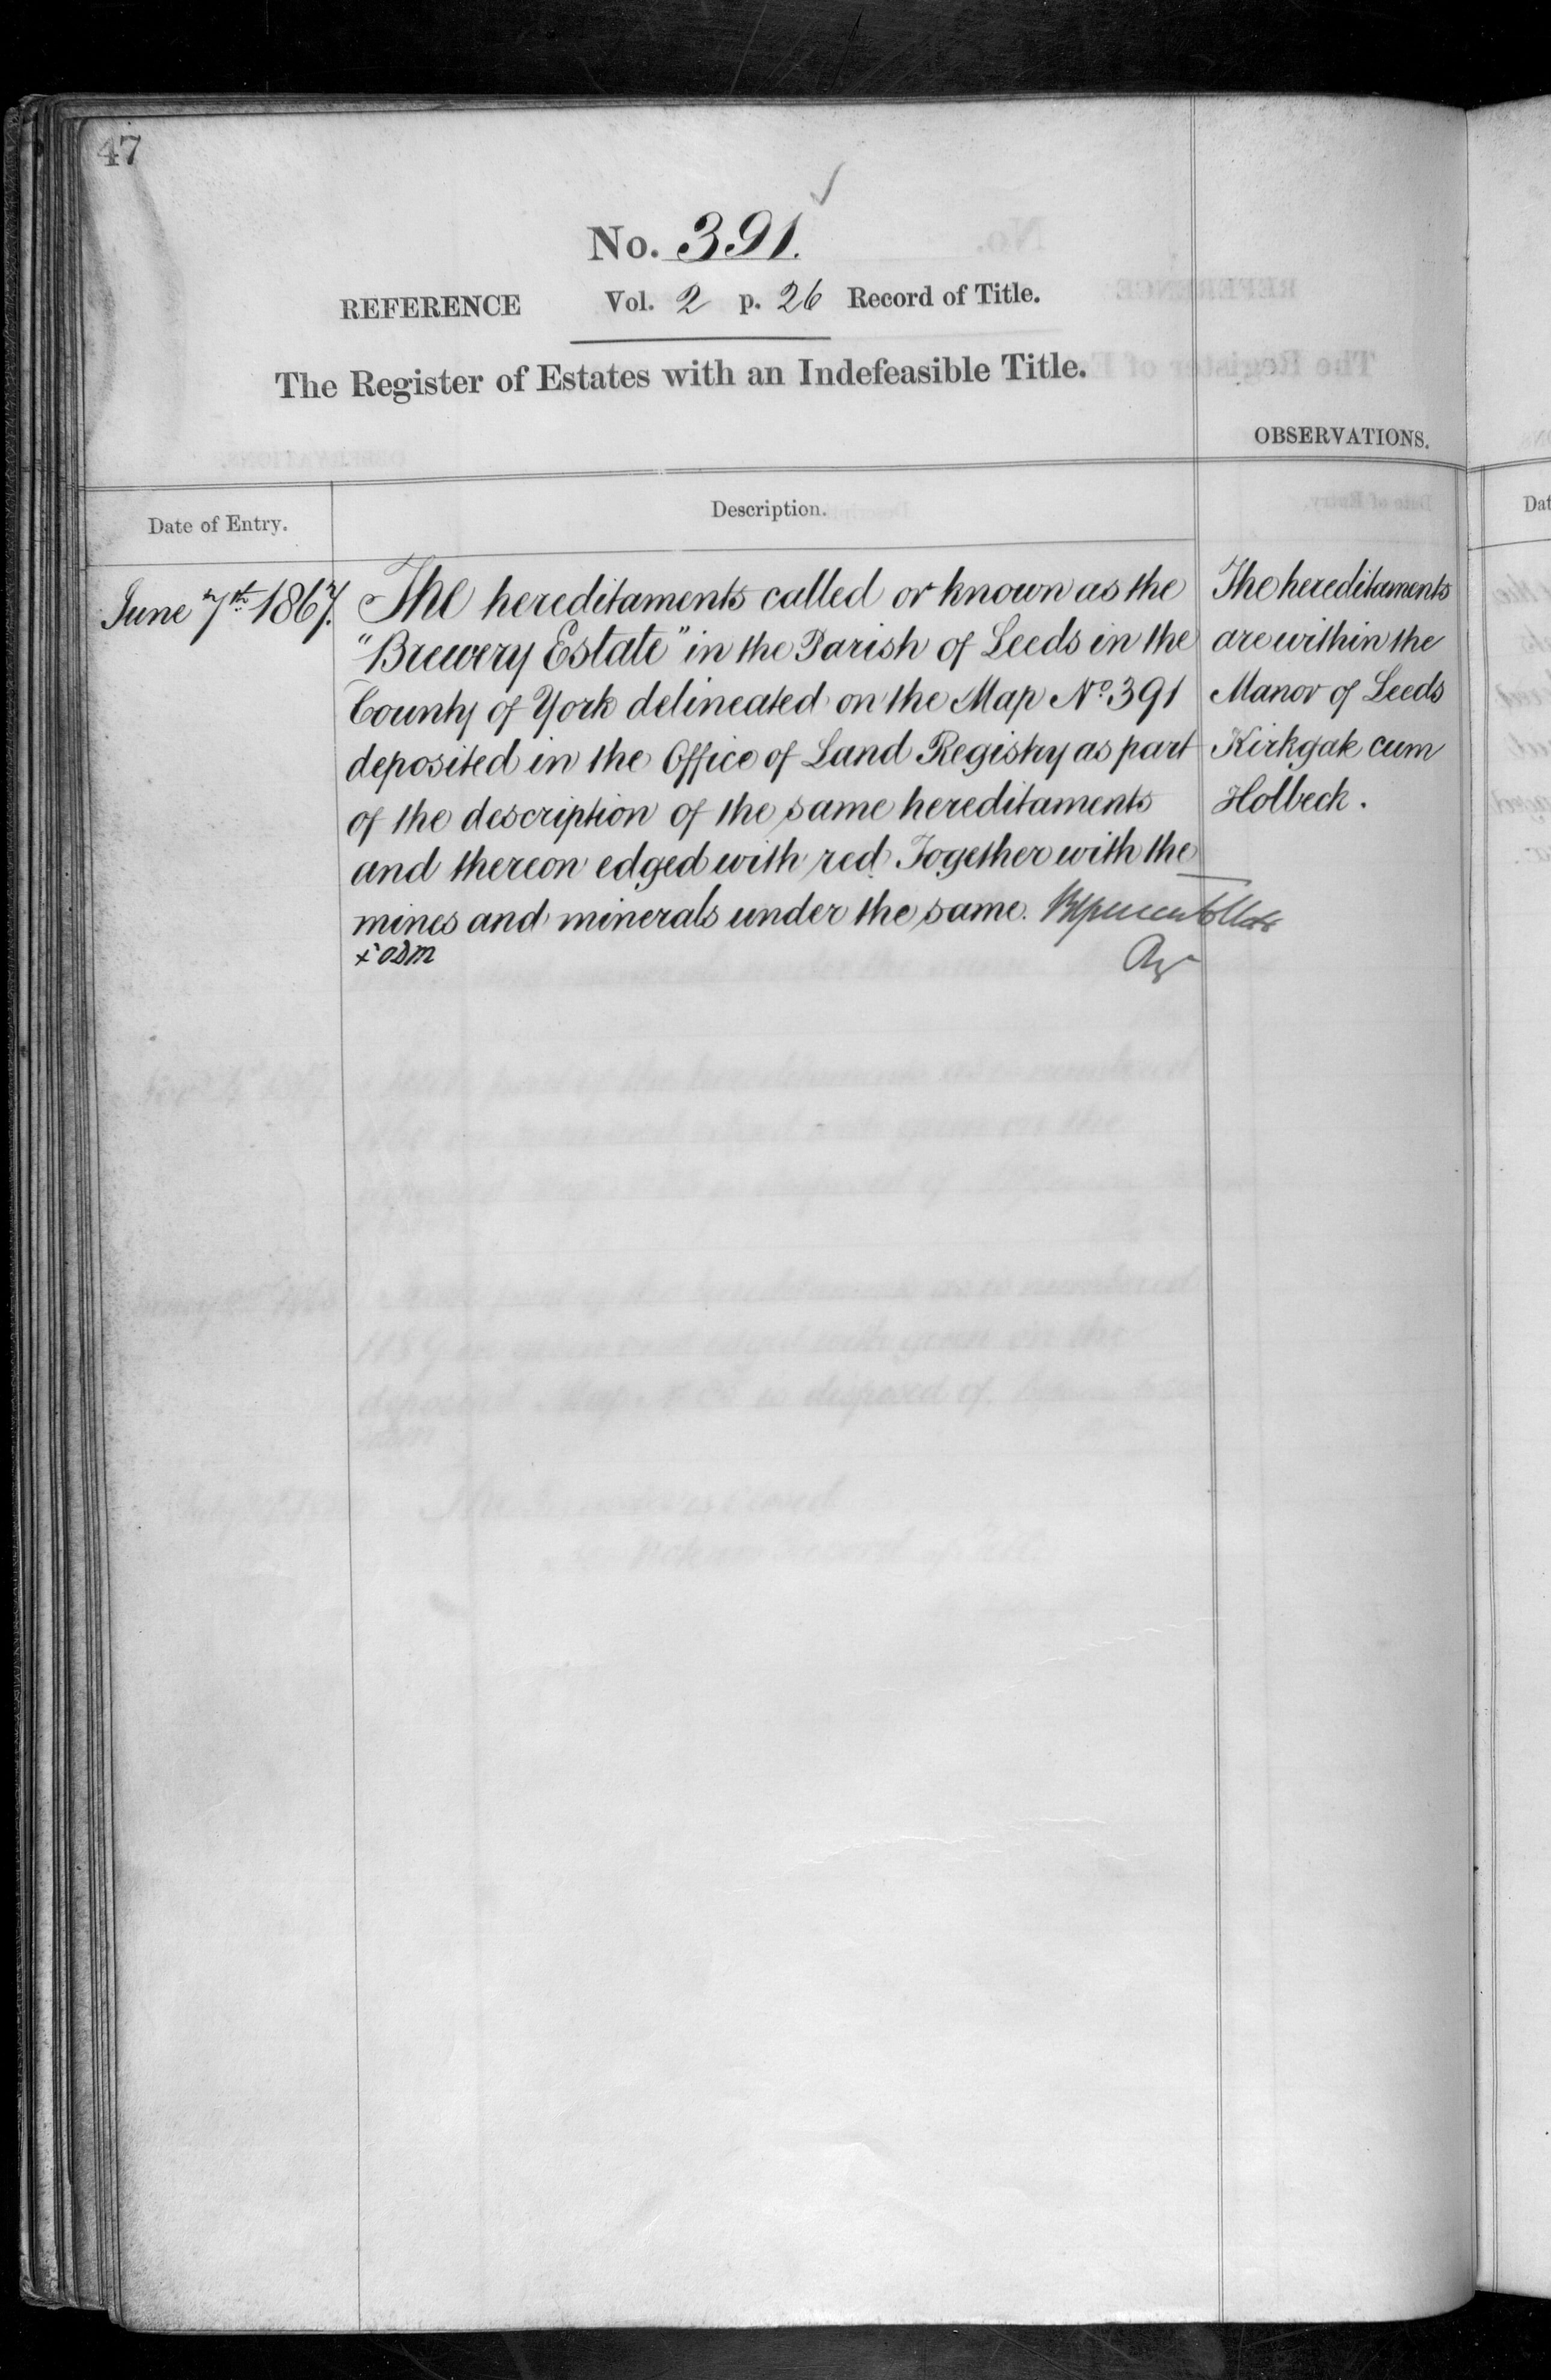 47
No. 391.
REFERENCE Vol. 2 p. 26 Record of Title.
The Register of Estates with an Indefeasible Title.
OBSERVATIONS.
Date of Entry.
Description.
June 7th 1867.
The hereditaments called or known as the
"Brewery Estate" in the Parish of Leeds in the
County of York delineated on the Map No. 391
deposited in the Office of Land Registry as part
of the description of the same hereditaments
and thereon edged with red. Together with the
mines and minerals under the same.
The hereditaments
are within the
Manor of Leeds
Kirkgate cum
Holbeck.
Dat